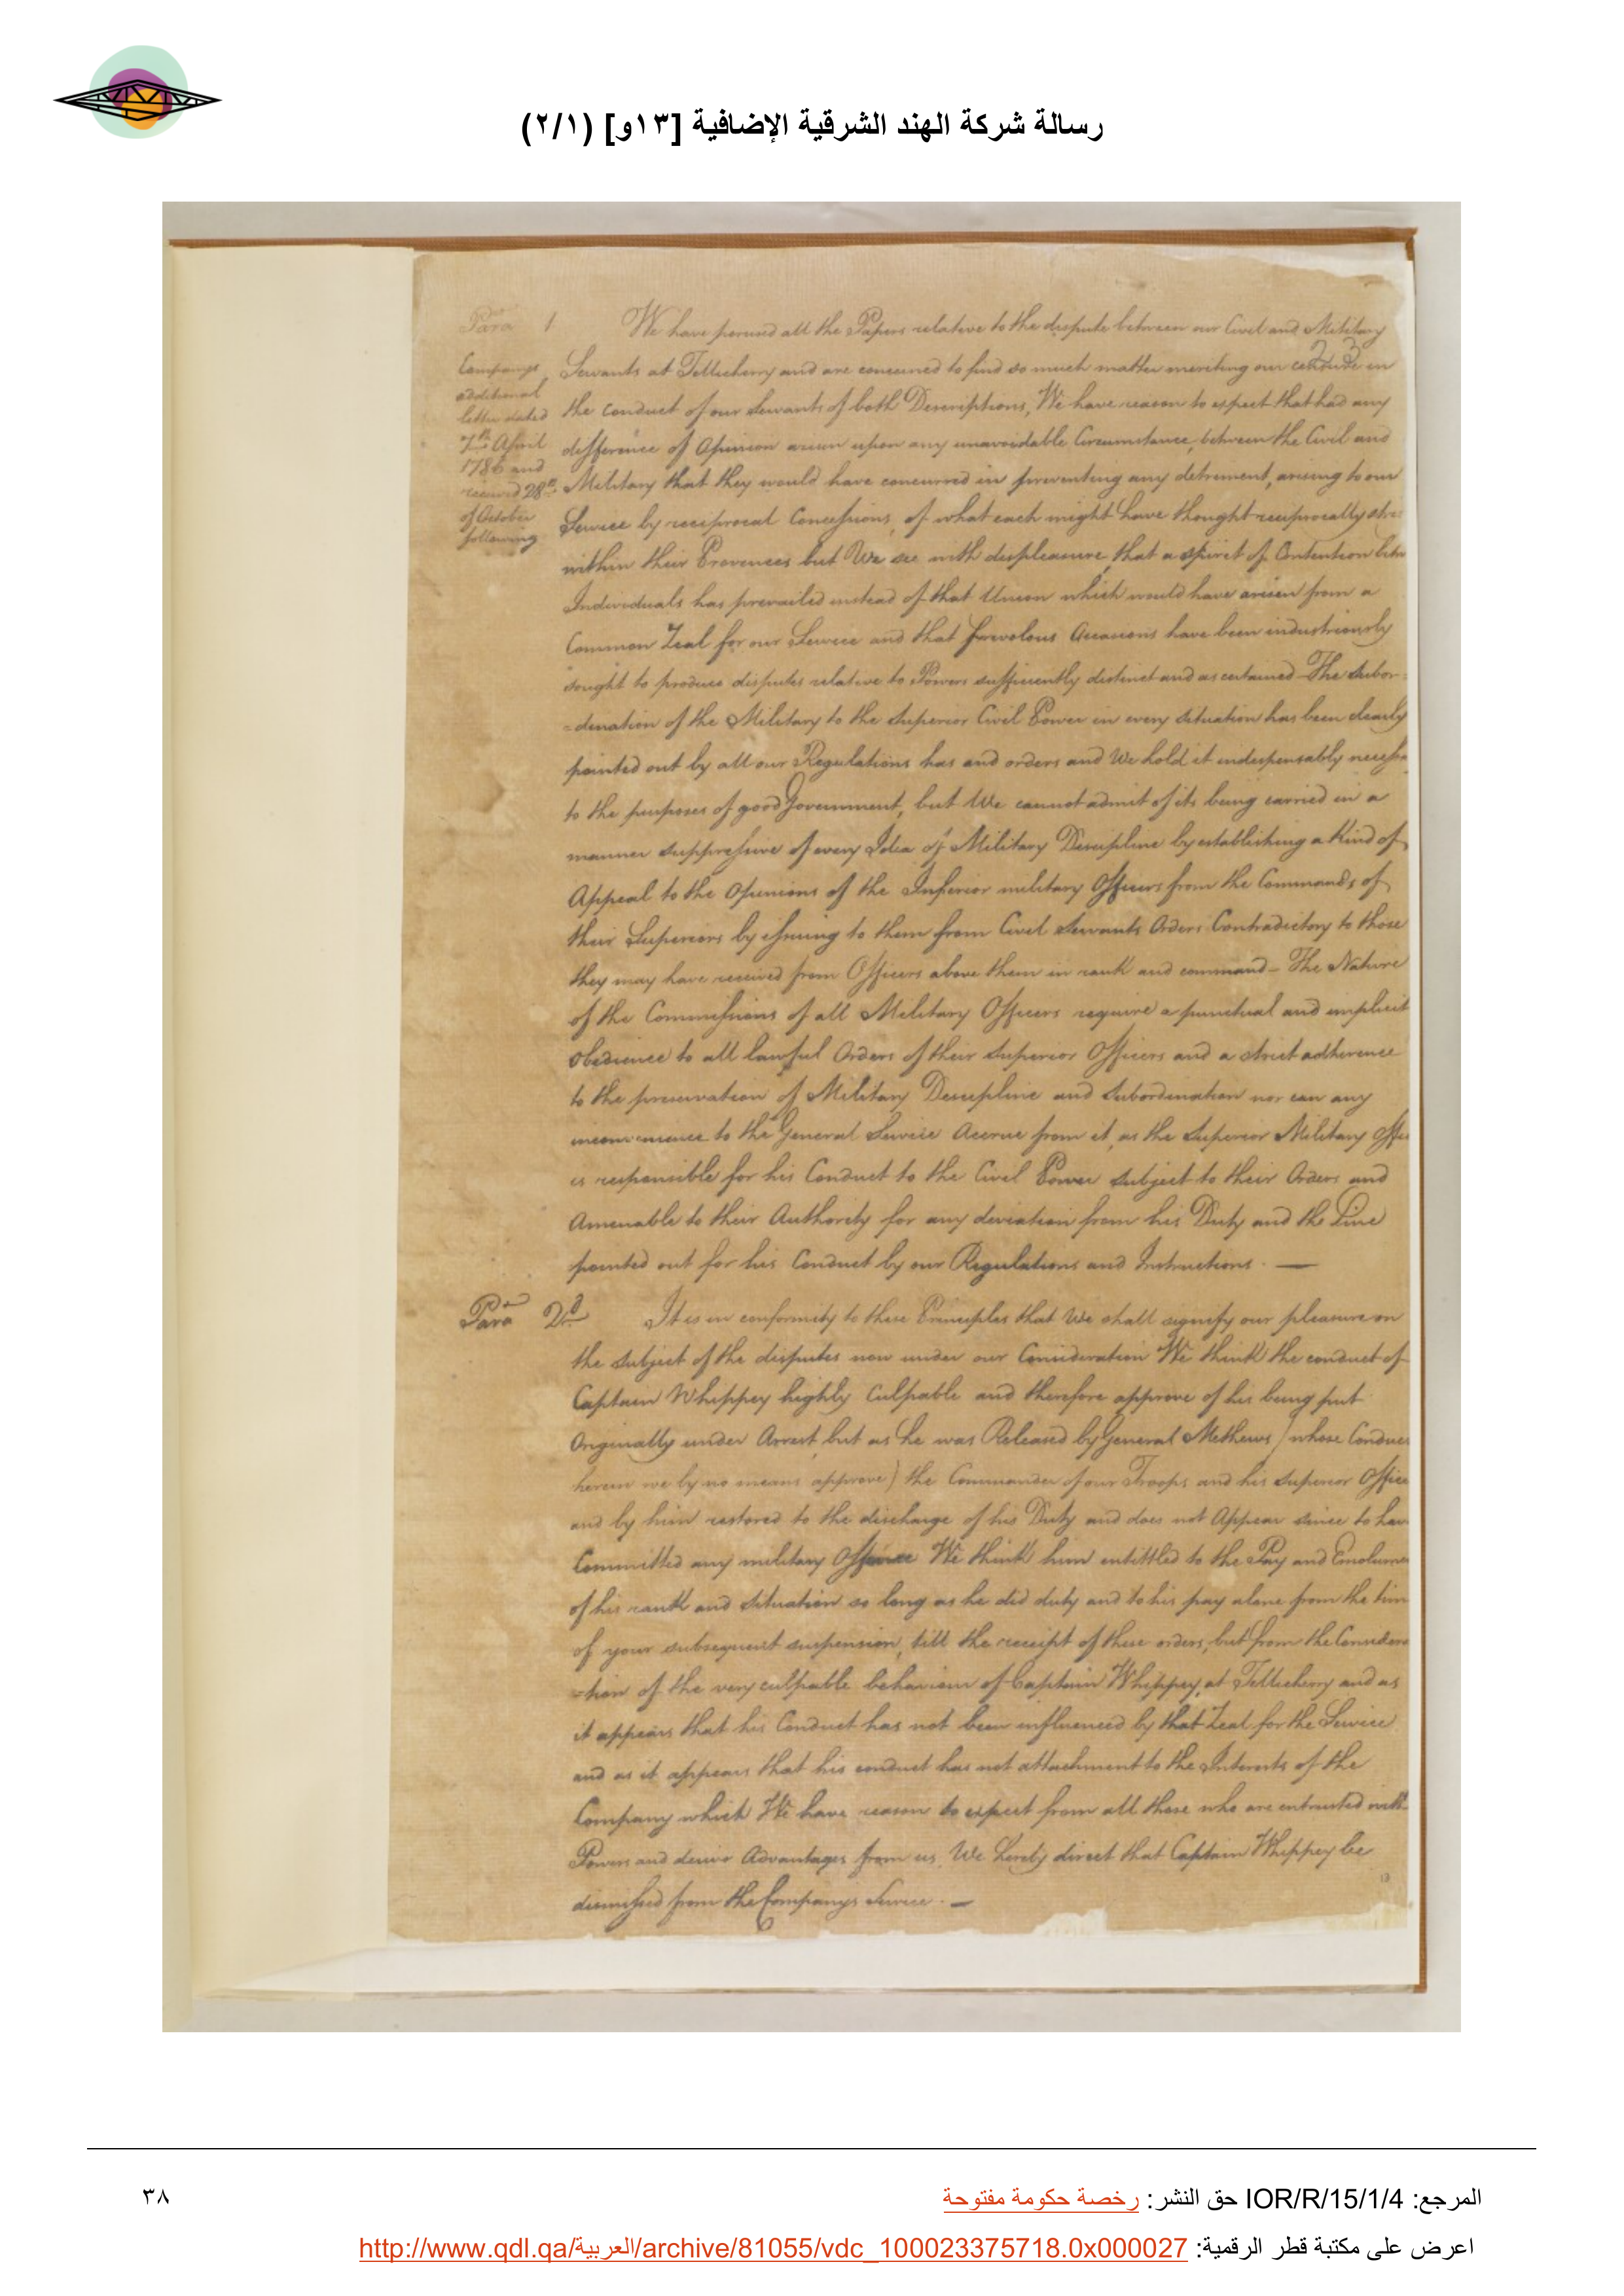 رسالة شركة الهند الشرقية الإضافية [١٣و] (٢/١)
Para 1 We have perused all the Papers relative to the dispute between our Civil and Military
Companys additional letter dated 7th April 1786 and received 28th of October following
Servants at Tellicherry and are concerned to find so much matter meriting our censure in
the conduct of our Servants of both Descriptions, We have reason to expect that had any
difference of Opinion arisen upon any unavoidable Circumstance, between the Civil and
Military that they would have concurred in preventing any detriment, arising to our
Service by reciprocal Concessions, of what each might have thought reciprocally
within their Provinces but We see with displeasure, that a spirit of Contention
Individuals has prevailed instead of that Union which would have arisen from a
Common Zeal for our Service and that frivolous Occasions have been industriously
sought to produce disputes relative to Powers sufficiently distinct and ascertained - The Subor=
=dination of the Military to the Superior Civil Power in every situation has been clearly
pointed out by all our Regulations has and orders and We hold it indispensably
to the purposes of good Government, but We cannot admit of its being carried in a
manner suppressive of every Idea of Military Discipline by establishing a Kind of
Appeal to the Opinions of the Inferior military Officers from the Commands of
their Superiors by issuing to them from Civil Servants Orders Contradictory to those
they may have received from Officers above them in rank and command - The Nature
of the Commissions of all Military Officers require a punctual and implicit
Obedience to all lawful Orders of their Superior Officers and a strict adherence
to the preservation of Military Discipline and Subordination nor can any
inconvenience to the General Service Accrue from it, as the Superior Military
is responsible for his Conduct to the Civil Power subject to their Orders and
Amenable to their Authority for any deviation from his Duty and the Line
pointed out for his Conduct by our Regulations and Instructions. —
Para 2d It is in conformity to these Principles that We shall signify our pleasure on
the subject of the disputes now under our Consideration We think the conduct of
Captain Whippey highly Culpable and therefore approve of his being put
Originally under Arrest, but as he was Released by General Mathews (whose
herein we by no means approve) the Commander of our Troops and his Superior
and by him restored to the discharge of his Duty and does not Appear since to
Committed any military Offence We think him entittled to the Pay and
of his rank and situation so long as he did duty and to his pay alone from the
of your subsequent suspension, till the receipt of these orders, but from the
=tion of the very culpable behaviour of Captain Whippey, at Tellicherry and as
it appears that his Conduct has not been influenced by that Zeal for the Service
and as it appears that his conduct has not attachment to the Interests of the
Company which We have reason to expect from all those who are entrusted with
Powers and derive Advantages from us, We hereby direct that Captain Whippey be
dismissed from the Companys Service. —
المرجع: IOR/R/15/1/4 حق النشر: رخصة حكومة مفتوحة
٣٨
اعرض على مكتبة قطر الرقمية: http://www.qdl.qa/العربية/archive/81055/vdc_100023375718.0x000027